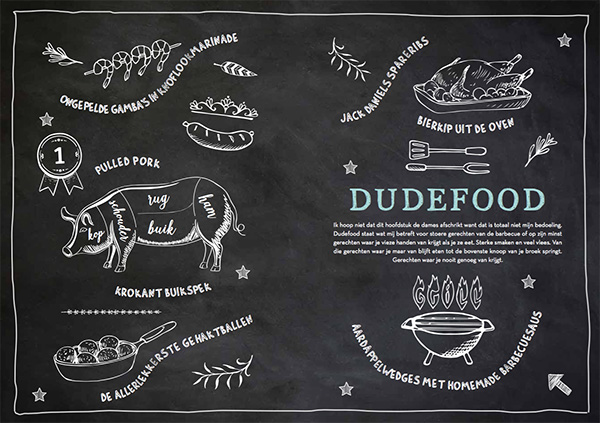 ONGEPELDE GAMBA'S IN KNOFLOOKMARINADE
1
PULLED PORK
kop
schouder
rug
buik
ham
KROKANT BUIKSPEK
DE ALLERLEKKERSTE GEHAKTBALLEN
JACK DANIELS SPARERIBS
BIERKIP UIT DE OVEN
DUDEFOOD
Ik hoop niet dat dit hoofdstuk de dames afschrikt want dat is totaal niet mijn bedoeling.
Dudefood staat wat mij betreft voor stoere gerechten van de barbecue of op zijn minst
gerechten waar je vieze handen van krijgt als je ze eet. Sterke smaken en veel vlees. Van
die gerechten waar je maar van blijft eten tot de bovenste knoop van je broek springt.
Gerechten waar je nooit genoeg van krijgt.
AARDAPPELWEDGES MET HOMEMADE BARBECUESAUS